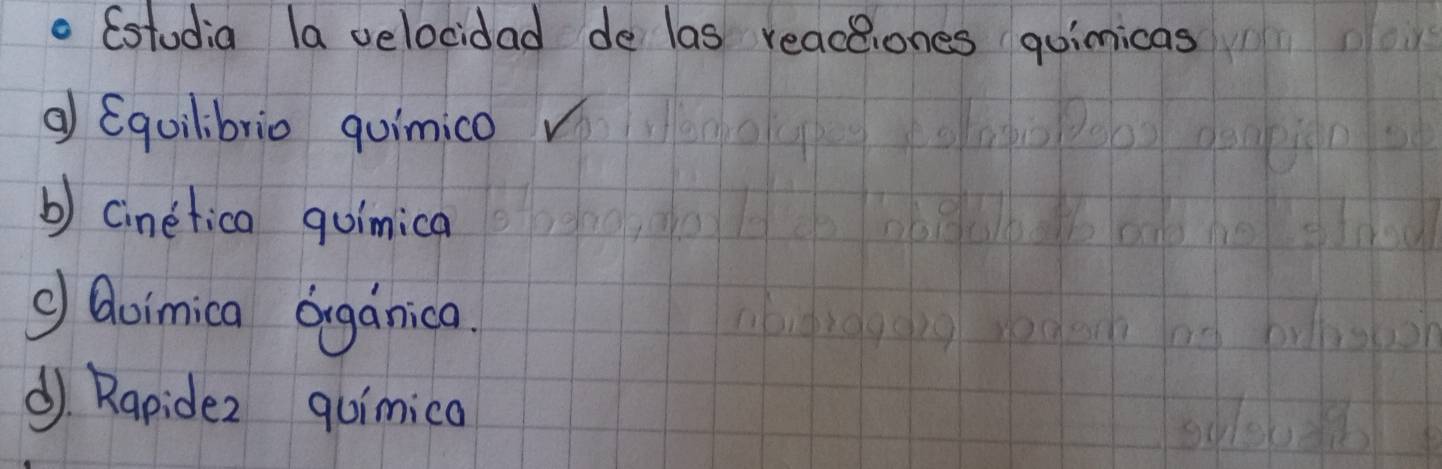 • Estudia la velocidad de las reacciones químicas
a) Equilibrio químico ✓
b) cinética química
c) Química órgánica.
d). Rapidez química